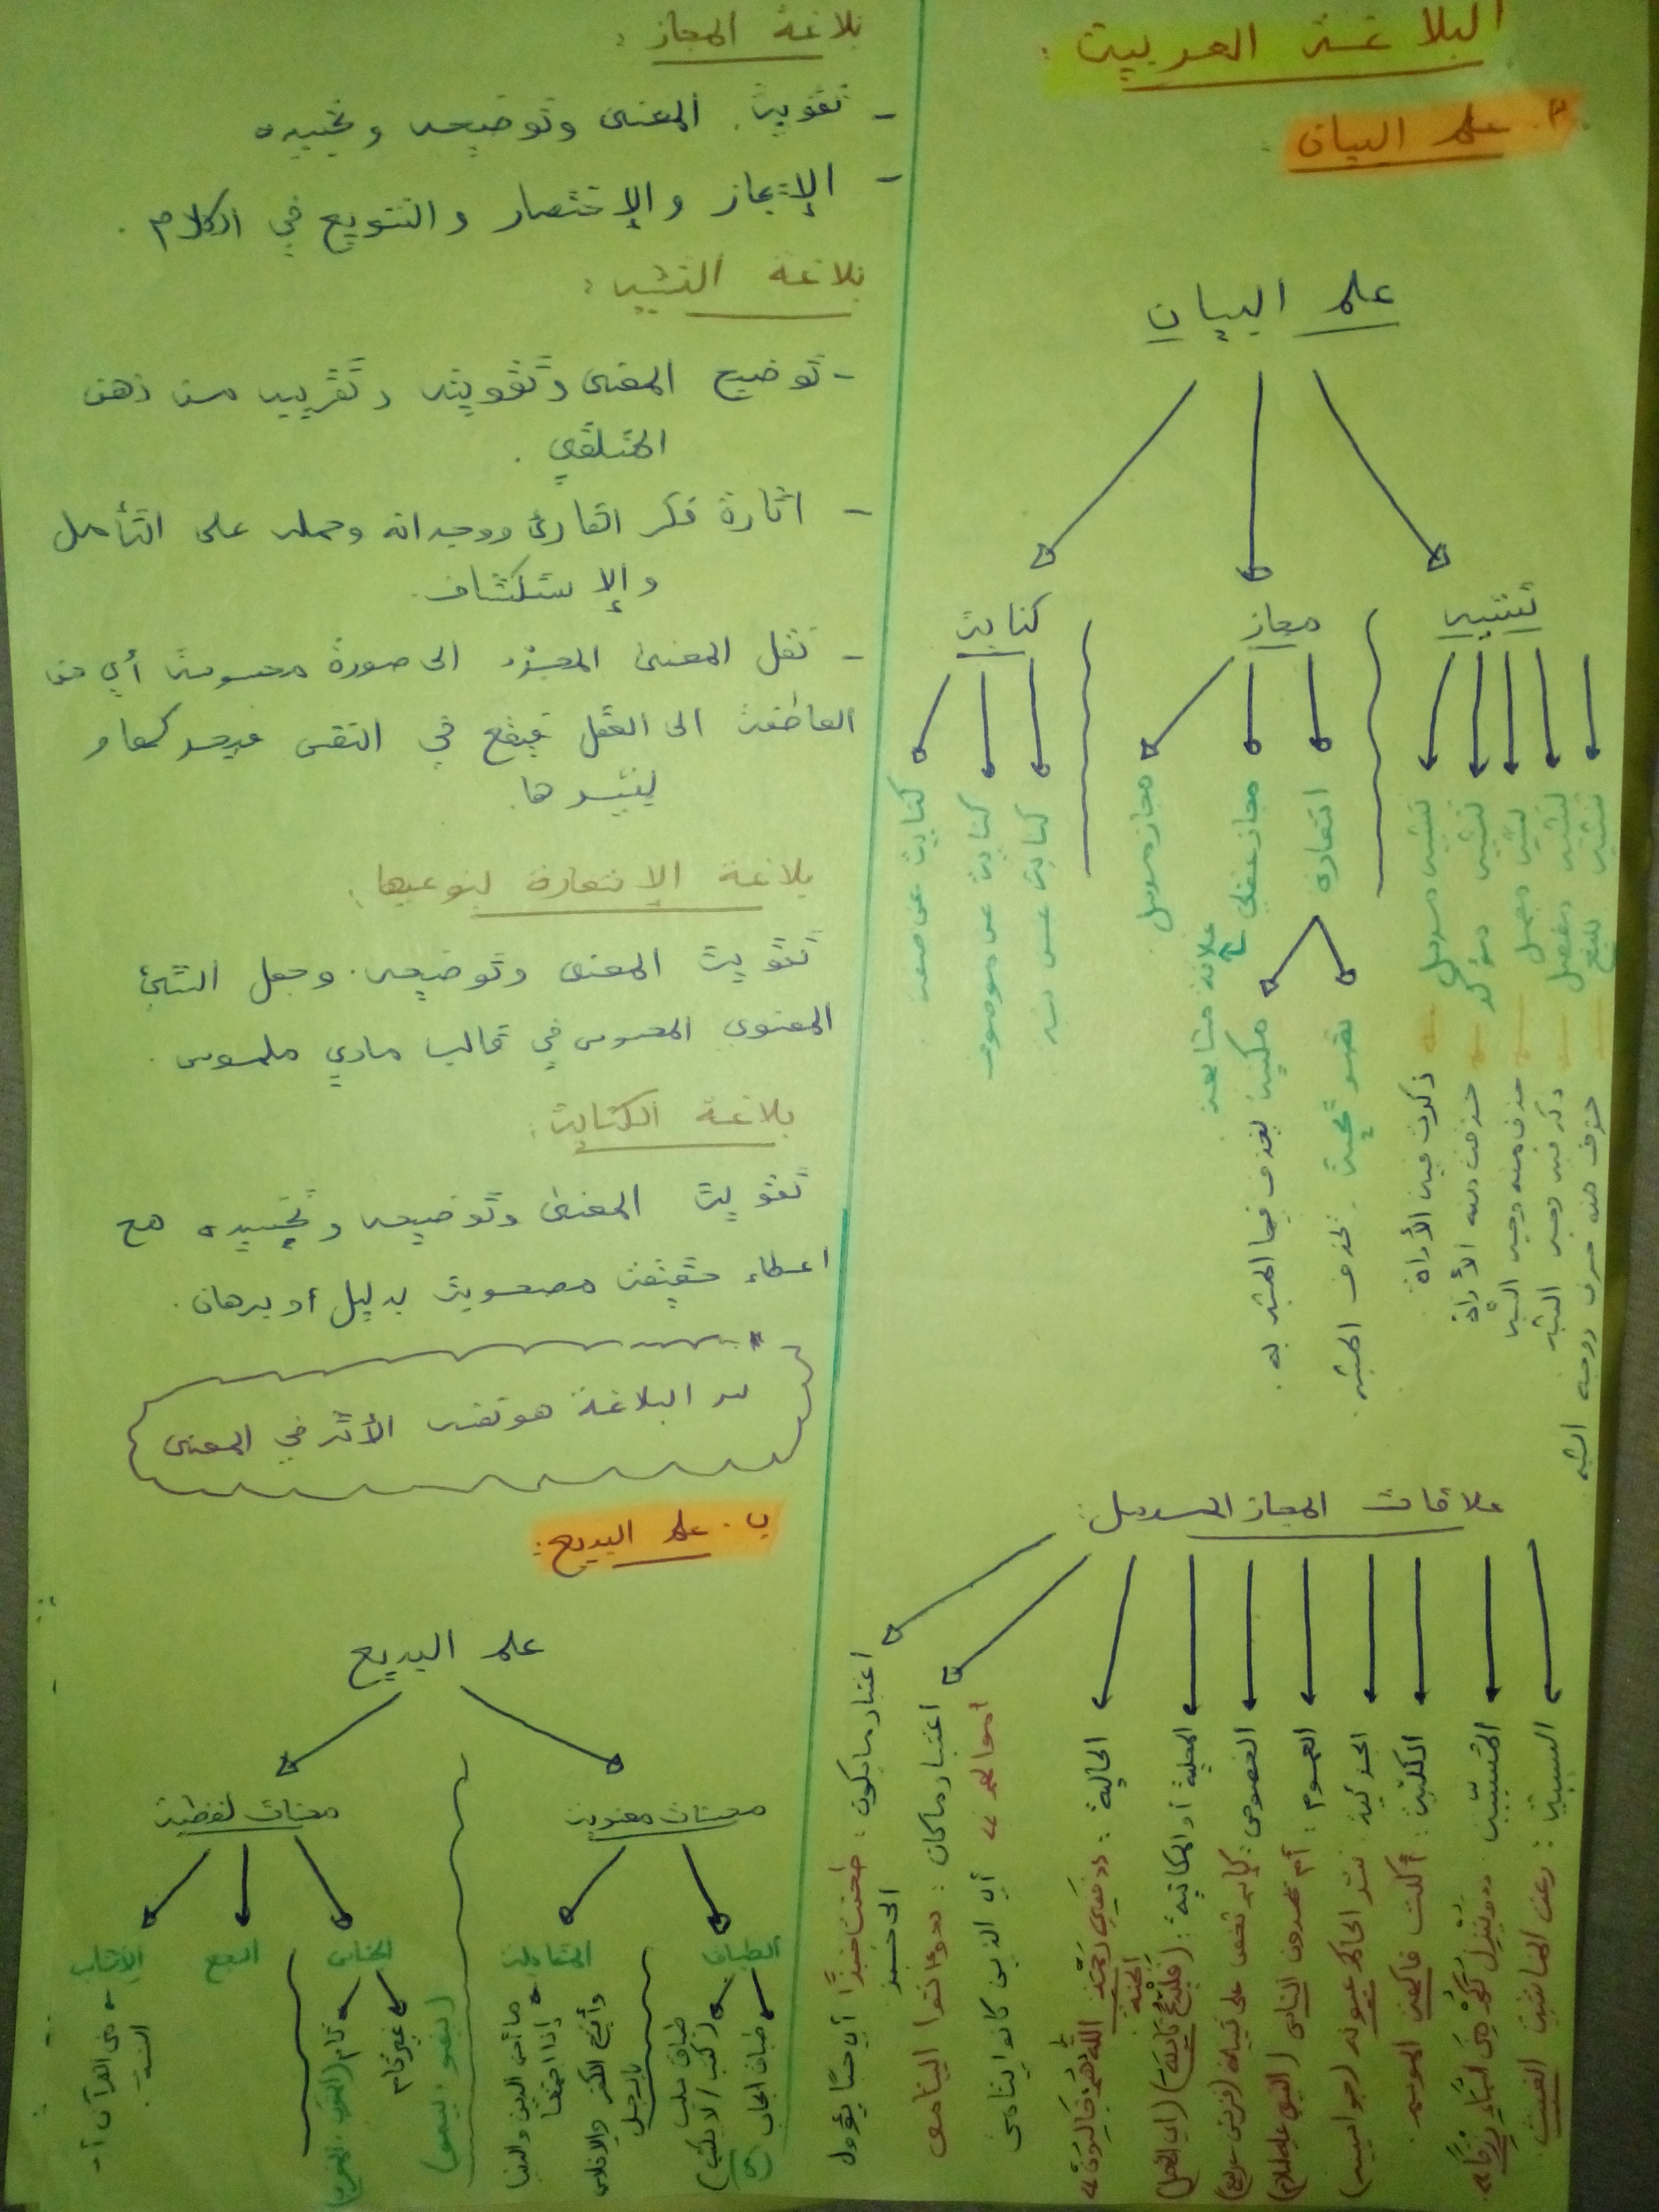 البلاغة العربية :
أ. علم البيان :
علم البيان
تشبيه
مجاز
كناية
تشبيه بليغ ← حذف منه حرف ووجه الشبه
تشبيه مفصل ← ذكر فيه وجه الشبه
تشبيه مجمل ← حذف منه وجه الشبه
تشبيه مؤكد ← حذفت منه الأداة
تشبيه مرسل ← ذكرت فيه الأداة
استعارة
مجاز عقلي
علاقة مشابهة
مجاز مرسل
تصريحية : حذف المشبه
مكنية يحذف فيها المشبه به .
كناية عن نسبة
كناية عن موصوف
كناية عن صفة
علاقات المجاز المرسل :
السببية : رعت الماشية الغيث
المسببية : "وينزل لكم من السماء رزقا"
الكلية : أكلت فاكهة الموسم
الجزئية : نشر الحاكم عيونه (جواسيسه)
العموم : أم يحسدون الناس (النبي عليه السلام)
الخصوص :
المحلية أو المكانية : (فليدع ناديه) (أي أهل)
الحالية : "ففي رحمة الله هم فيها خالدون"
الجنة
اعتبار ما كان : "وءاتوا اليتامى
أموالهم" أي الذين كانوا يتامى
اعتبار ما يكون : طحنت خبزًا أي حبًا يؤول
إلى خبز
بلاغة المجاز :
- تقوية المعنى وتوضيحه وتجسيده
- الإيجاز والإختصار والتنويع في الكلام .
بلاغة التشبيه :
- توضيح المعنى وتقويته وتقريبه من ذهن
المتلقي .
- اثارة فكر القارئ ووجدانه وحمله على التأمل
والإستكشاف .
- نقل المعنى المجرد الى صورة محسوسة أي من
العاطفة الى العقل فيقع في النفس
بلاغة الإستعارة بنوعيها :
تقوية المعنى وتوضيحه . وجعل الشيئ
المعنوي المحسوس في قالب مادي ملموس .
بلاغة الكناية :
تقوية المعنى وتوضيحه وتجسيده مع
اعطاء حقيقة مصحوبة بدليل أو برهان .
سر البلاغة هو نفسه الأثر في المعنى
ب . علم البديع :
علم البديع
محسنات معنوية
محسنات لفظية
الطباق
طباق ايجاب
طباق سلب
(يكتب / لا يكتب)
المقابلة
ما أحسن الدين والدنيا
إذا اجتمعا
وأقبح الكفر والإفلاس
بالرجل
الجناس
غير تام
تام
السجع
الإقتباس
من القرآن أو
السنة